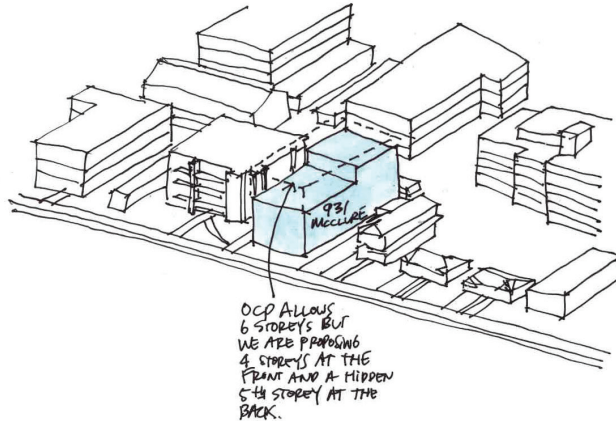 931
McCLURE
OCP ALLOWS
6 STOREYS BUT
WE ARE PROPOSING
4 STOREYS AT THE
FRONT AND A HIDDEN
5th STOREY AT THE
BACK.